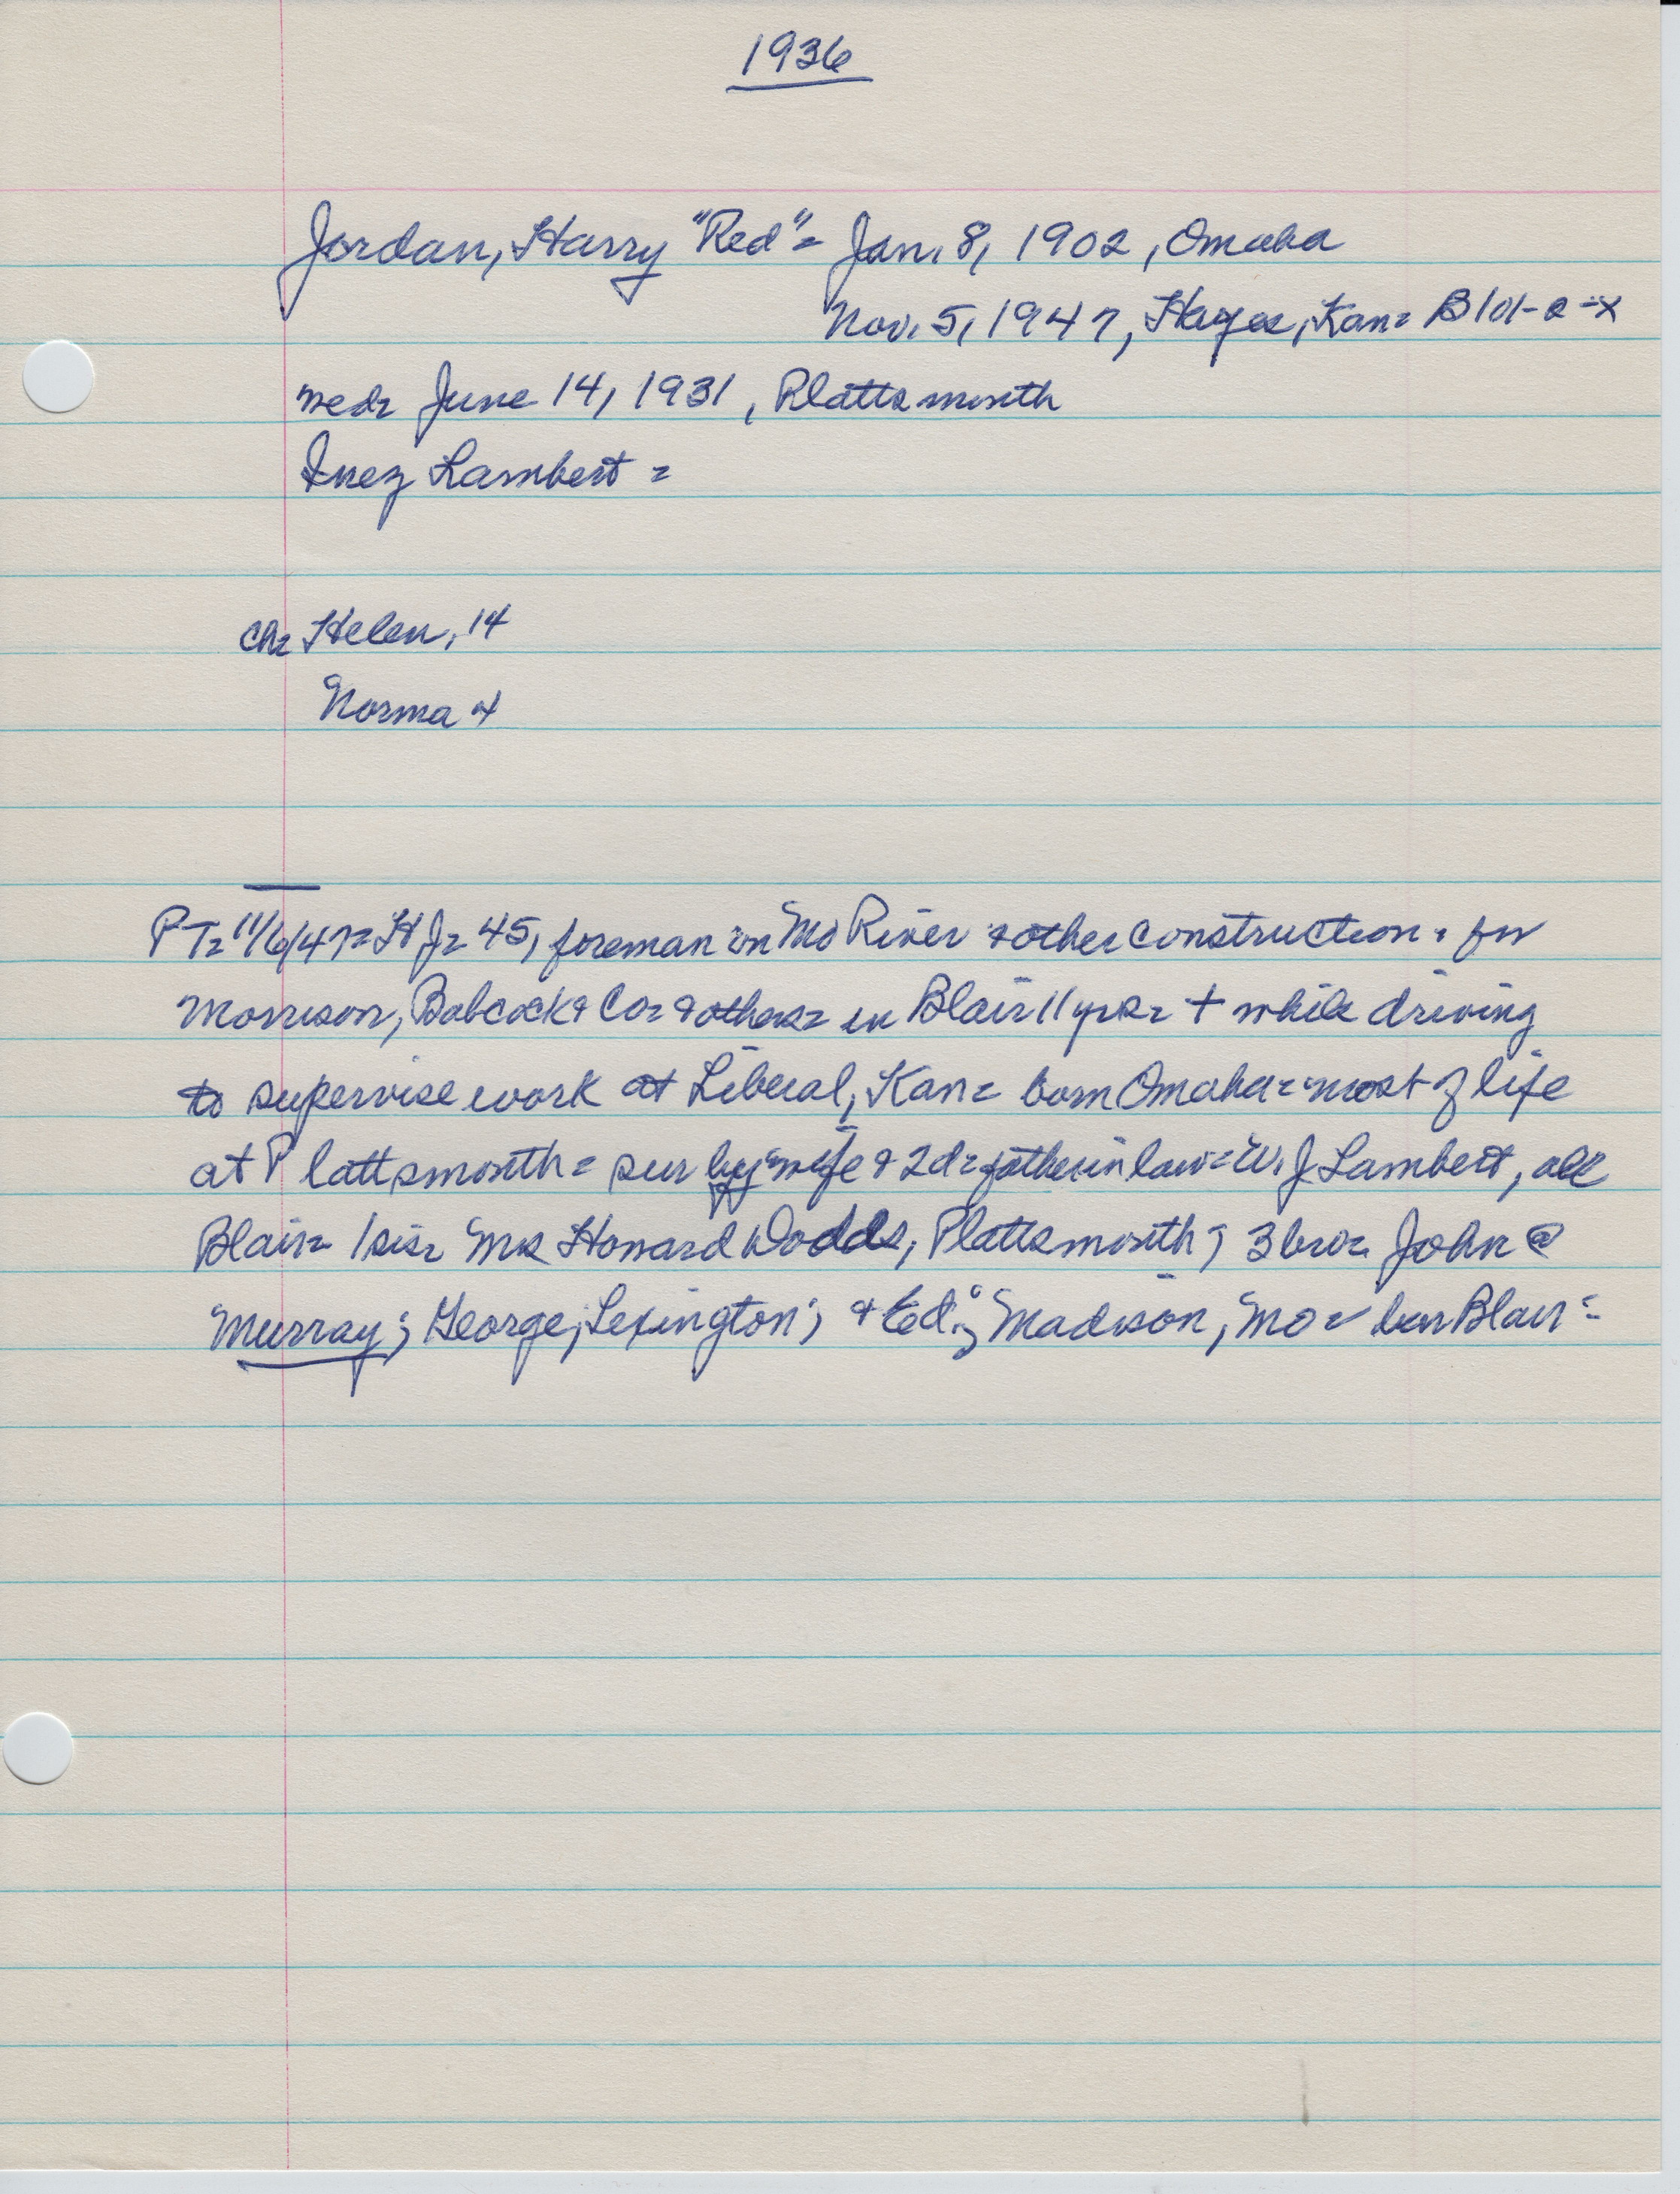 1936
Jordan, Harry "Red" = Jan. 8, 1902, Omaha
Nov. 5, 1947, Hayes, Kan = B 101-2-x
wed = June 14, 1931, Plattsmouth
Inez Lambert =
ch = Helen, 14
Norma 4
PT = 11/6/47 = HJ = 45, foreman on Mo River & other construction. for
Morrison, Babcock & Co = & others = in Blair 11 yrs = + while driving
to supervise work at Liberal, Kan = born Omaha = most of life
at Plattsmouth = sur by wife & 2d = father in law = W. J Lambert, all
Blair = 1 sis = Mrs Howard Dodds, Plattsmouth; 3 bro = John @
Murray; George, Lexington; & Ed; Madison, Mo = bur Blair =